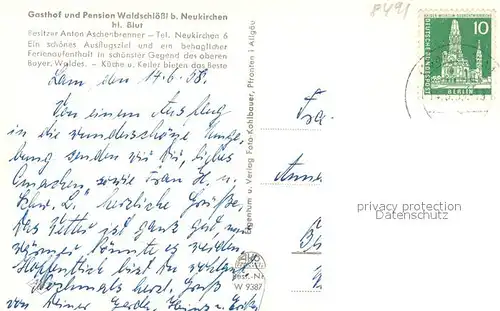 Gasthof und Pension Waldschlößl b. Neukirchen
hl. Blut
Besitzer Anton Aschenbrenner - Tel. Neukirchen 6
Ein schönes Ausflugsziel und ein behaglicher
Ferienaufenthalt in schönster Gegend des oberen
Bayer. Waldes. - Küche u. Keller bieten das Beste
Lam, den 14.6.58.
Von einem Ausflug
in die wunderschöne Umge-
bung senden wir Dir, liebes
Omachen sowie Frau H. u.
herzliche Grüße.
Das Wetter ist ganz gut, nur
wärmer könnte es werden.
Hoffentlich bist Du wohlauf
Nochmals herzl. Gruß
von Deiner Gerda, Heinz u.
Eigentum u. Verlag Foto Kohlbauer, Pfronten i Allgäu
Best.-Nr.
W 9387
8491
10
DEUTSCHE BUNDESPOST
BERLIN
privacy protection
Datenschutz